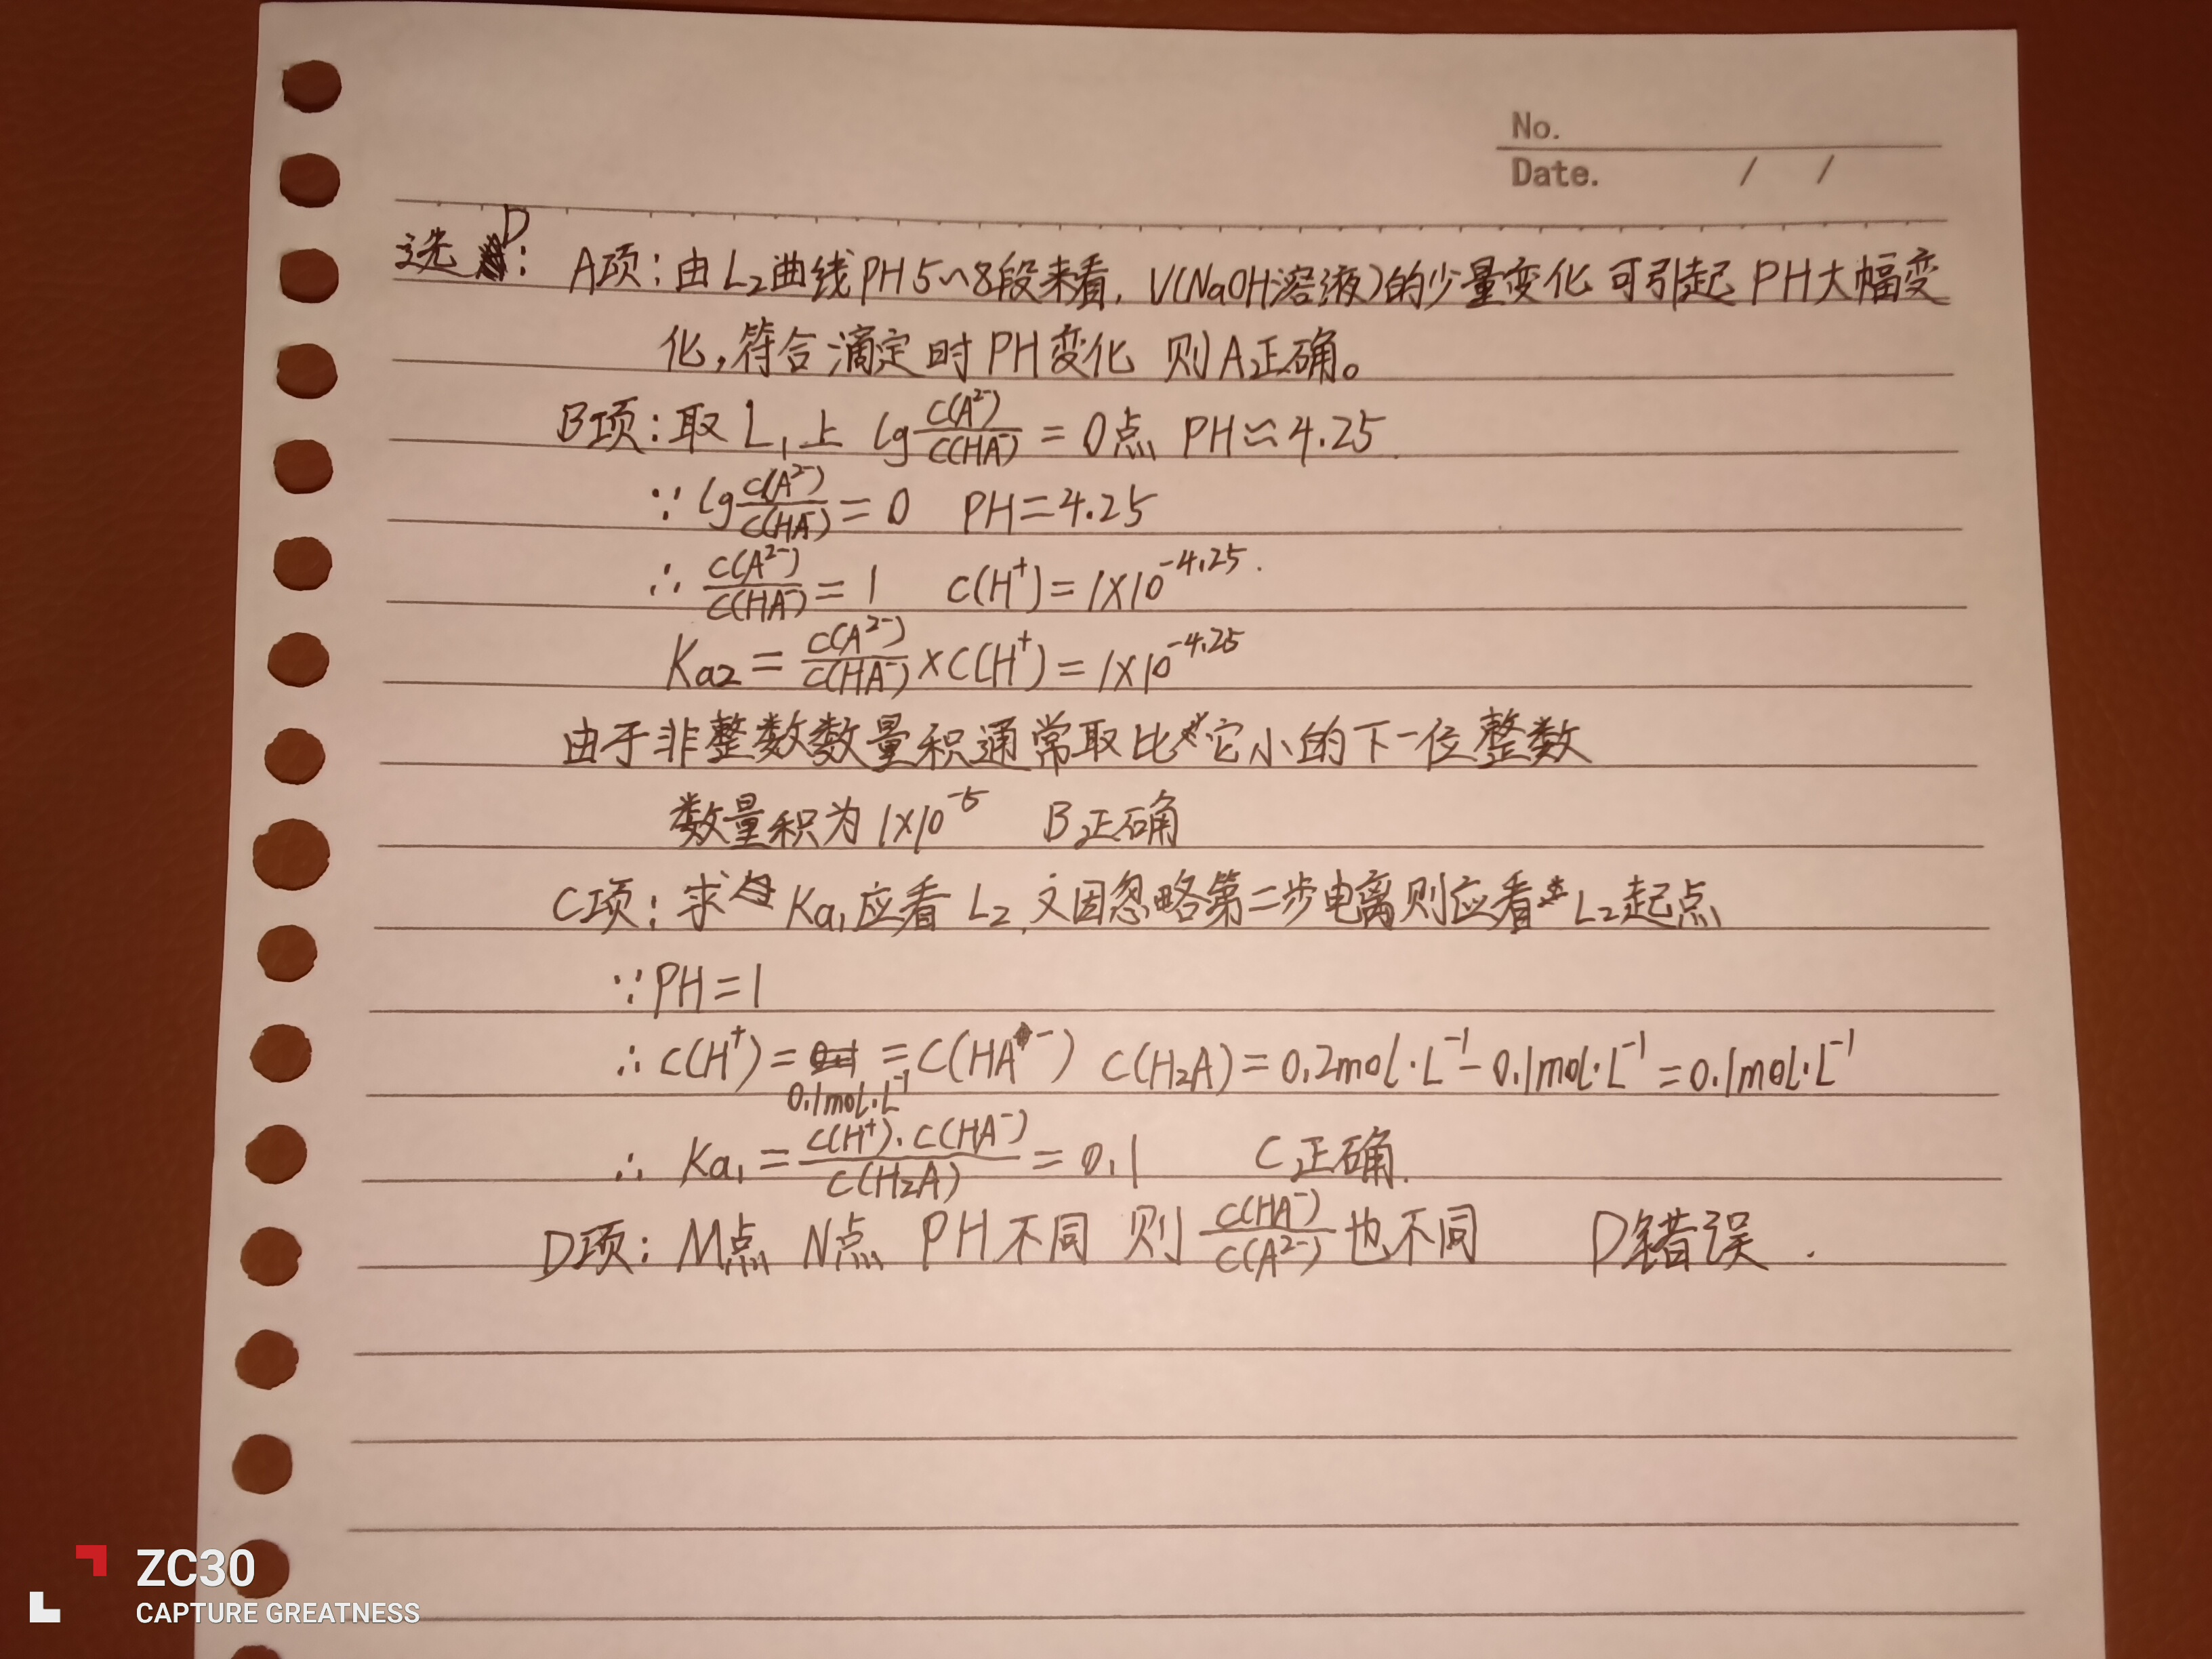 No.
Date. / /
选D: A项:由L₂曲线PH5~8段来看,V(NaOH溶液)的少量变化可引起PH大幅变
化,符合滴定时PH变化 则A正确。
B项:取L₁上 lg c(A²⁻)/c(HA⁻) = 0点 PH≈4.25.
∵ lg c(A²⁻)/c(HA⁻) = 0 PH=4.25
∴ c(A²⁻)/c(HA⁻) = 1 c(H⁺)=1×10⁻⁴·²⁵.
Ka2 = c(A²⁻)/c(HA⁻) ×c(H⁺)=1×10⁻⁴·²⁵
由于非整数数量积通常取比它小的下一位整数
数量积为1×10⁻⁵ B正确
C项:求Ka₁应看L₂,又因忽略第二步电离则应看L₂起点
∵PH=1
∴c(H⁺)=0.1mol·L⁻¹=c(HA⁻) c(H₂A)=0.2mol·L⁻¹-0.1mol·L⁻¹=0.1mol·L⁻¹
∴ Ka₁= c(H⁺)·c(HA⁻)/c(H₂A) =0.1 C正确.
D项:M点 N点 PH不同 则 c(HA⁻)/c(A²⁻) 也不同 D错误.
ZC30
CAPTURE GREATNESS